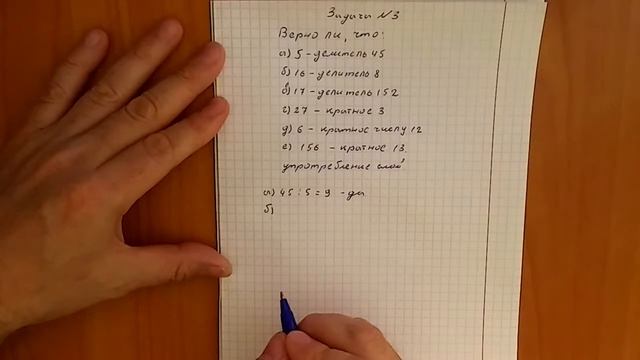 Задача №3
Верно ли, что:
а) 5 - делитель 45
б) 16 - делитель 8
в) 17 - делитель 152
г) 27 - кратное 3
д) 6 - кратное числу 12
е) 156 - кратное 13
употребление слов
а) 45 : 5 = 9 - да
б)